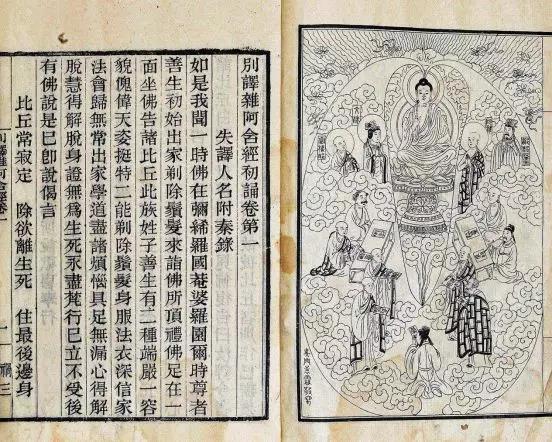 別譯雜阿含經初誦卷第一
失譯人名附秦錄
如是我聞一時佛在彌絺羅國菴婆羅園爾時尊者
善生初始出家剃除鬚髮來詣佛所頂禮佛足在一
面坐佛告諸比丘此族姓子善生有二種端嚴一容
貌傀偉天姿挺特二能剃除鬚髮身服法衣深信家
法會歸無常出家學道盡諸煩惱具足無漏心得解
脫慧得解脫身證無為生死永盡梵行已立不受後
有佛說是已即說偈言
比丘常寂定　除欲離生死　住最後邊身